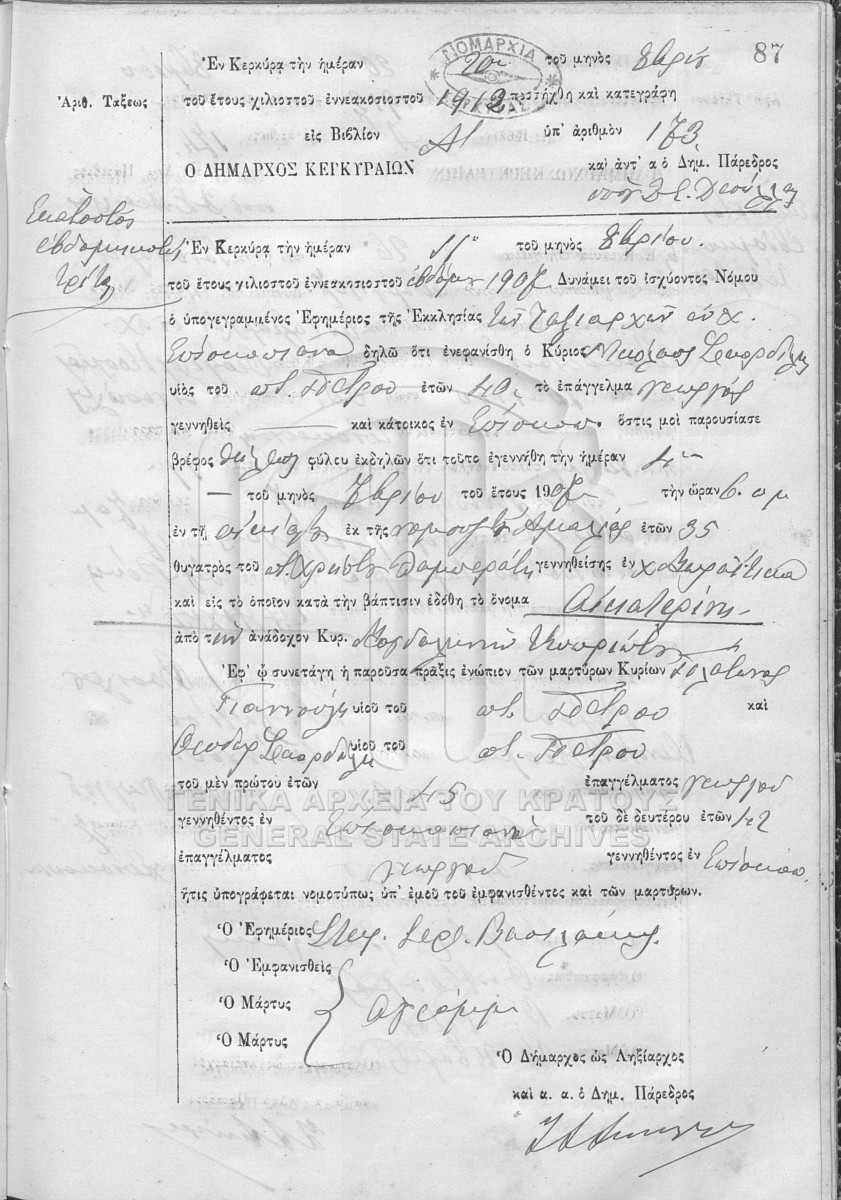 87
Ἐν Κερκύρᾳ τὴν ἡμέραν 20ην τοῦ μηνὸς
ΝΟΜΑΡΧΙΑ
Ἀριθ. Τάξεως
τοῦ ἔτους χιλιοστοῦ ἐννεακοσιοστοῦ 1912 προσήχθη καὶ κατεγράφη
εἰς Βιβλίον Α' ὑπ' ἀριθμὸν 173
Ο ΔΗΜΑΡΧΟΣ ΚΕΡΚΥΡΑΙΩΝ καὶ ἀντ' α ὁ Δημ. Πάρεδρος
Ἑκατοστὸς
ἑβδομηκοστὸς
τρίτη
Ἐν Κερκύρᾳ τὴν ἡμέραν 11 τοῦ μηνὸς 7βρίου.
τοῦ ἔτους χιλιοστοῦ ἐννεακοσιοστοῦ ἑβδόμου 1907 Δυνάμει τοῦ ἰσχύοντος Νόμου
ὁ ὑπογεγραμμένος Ἐφημέριος τῆς Ἐκκλησίας τῶν Ταξιαρχῶν
Ἐπίσκοπιανὰ δηλῶ ὅτι ἐνεφανίσθη ὁ Κύριος Νικόλαος
υἱὸς τοῦ ποτ. Πέτρου ἐτῶν 40 τὸ ἐπάγγελμα γεωργὸς
γεννηθεὶς — καὶ κάτοικος ἐν Ἐπίσκοπ. ὅστις μοὶ παρουσίασε
βρέφος θήλεος φύλου ἐκδηλῶν ὅτι τοῦτο ἐγεννήθη τὴν ἡμέραν 4
— τοῦ μηνὸς 7βρίου τοῦ ἔτους 1907 τὴν ὥραν 6. π μ
ἐν τῇ οἰκίᾳ ἐκ τῆς νομ. συζ. Ἀμαλίας ἐτῶν 35
θυγατρὸς τοῦ ποτ. Χρήστου γεννηθείσης ἐν
καὶ εἰς τὸ ὁποῖον κατὰ τὴν βάπτισιν ἐδόθη τὸ ὄνομα Αἰκατερίνη
ἀπὸ τὴν ἀνάδοχον Κυρ. Μαγδαληνὴν
Ἐφ' ᾧ συνετάγη ἡ παροῦσα πρᾶξις ἐνώπιον τῶν μαρτύρων Κυρίων
Γιαννούλη υἱοῦ τοῦ ποτ. Πέτρου καὶ
υἱοῦ τοῦ ποτ. Πέτρου
τοῦ μὲν πρώτου ἐτῶν 45 ἐπαγγέλματος γεωργοῦ
ΓΕΝΙΚΑ ΑΡΧΕΙΑ ΤΟΥ ΚΡΑΤΟΥΣ
γεννηθέντος ἐν Ἐπισκοπιανὰ τοῦ δὲ δευτέρου ἐτῶν 42
GENERAL STATE ARCHIVES
ἐπαγγέλματος γεωργοῦ γεννηθέντος ἐν Ἐπίσκοπ.
ἥτις ὑπογράφεται νομοτύπως ὑπ' ἐμοῦ τοῦ ἐμφανισθέντος καὶ τῶν μαρτύρων.
Ὁ Ἐφημέριος
Ὁ Ἐμφανισθεὶς
Ὁ Μάρτυς
ἀγράμμ.
Ὁ Μάρτυς
Ὁ Δήμαρχος ὡς Ληξίαρχος
καὶ α. α. ὁ Δημ. Πάρεδρος